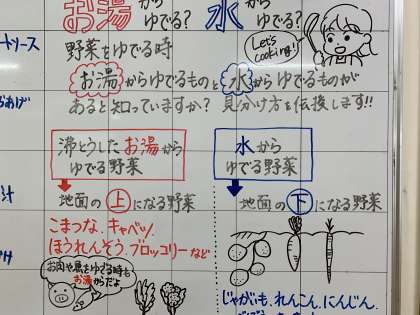 お湯から
ゆでる?
水から
ゆでる?
ートソース
野菜をゆでる時
Let's cooking!
お湯からゆでるものと水からゆでるものが
あると知っていますか? 見分け方を伝授します!!
沸とうしたお湯から
ゆでる野菜
水から
ゆでる野菜
地面の上になる野菜
地面の下になる野菜
こまつな、キャベツ、
ほうれんそう、ブロッコリーなど
お肉や魚をゆでる時も
お湯からだよ
じゃがいも、れんこん、にんじん、
汁